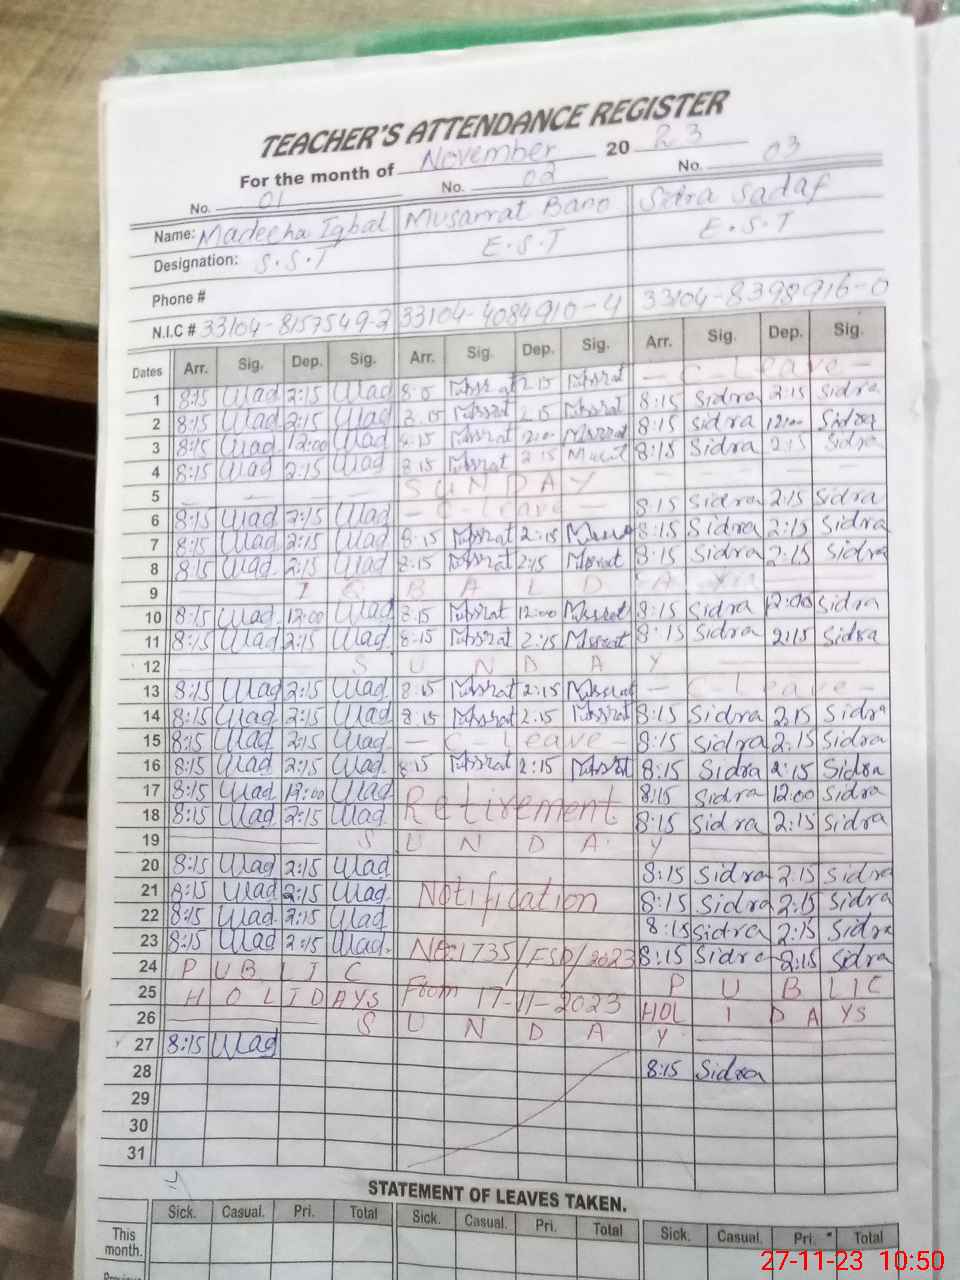 TEACHER'S ATTENDANCE REGISTER
For the month of November 20 23
No. 01 No. 02 No. 03
Name: Madeeha Iqbal Musarrat Bano Sidra Sadaf
Designation: S.S.T E.S.T E.S.T
Phone #
N.I.C # 33104-8157549-2 33104-4084910-4 33104-8398916-0
Dates Arr. Sig. Dep. Sig. Arr. Sig. Dep. Sig. Arr. Sig. Dep. Sig.
1 8:15 2:15 2:15 - C-Leave -
2 8:15 2:15 8:15 2:15 8:15 Sidra 2:15 Sidra
3 8:15 12:00 8:15 8:15 Sidra 12:00 Sidra
4 8:15 2:15 8:15 2:15 8:15 Sidra 2:15 Sidra
5 SUNDAY
6 8:15 2:15 - C-Leave - 8:15 Sidra 2:15 Sidra
7 8:15 2:15 8:15 2:15 8:15 Sidra 2:15 Sidra
8 8:15 2:15 8:15 2:15 8:15 Sidra 2:15 Sidra
9 I Q B A L D A Y
10 8:15 12:00 8:15 12:00 8:15 Sidra 12:00 Sidra
11 8:15 2:15 8:15 2:15 8:15 Sidra 2:15 Sidra
12 S U N D A Y
13 8:15 2:15 8:15 2:15 - C-Leave -
14 8:15 2:15 8:15 2:15 8:15 Sidra 2:15 Sidra
15 8:15 2:15 - C-Leave - 8:15 Sidra 2:15 Sidra
16 8:15 2:15 8:15 2:15 8:15 Sidra 2:15 Sidra
17 8:15 12:00 Retirement 8:15 Sidra 12:00 Sidra
18 8:15 2:15 8:15 Sidra 2:15 Sidra
19 S U N D A Y
20 8:15 2:15 8:15 Sidra 2:15 Sidra
21 8:15 2:15 Notification 8:15 Sidra 2:15 Sidra
22 8:15 2:15 8:15 Sidra 2:15 Sidra
23 8:15 2:15 No:1735/FSD/2023 8:15 Sidra 2:15 Sidra
24 P U B L I C P U B L I C
25 H O L I D A Y S From 17-11-2023 HOL I D A YS
26 S U N D A Y
27 8:15
28 8:15 Sidra
29
30
31
STATEMENT OF LEAVES TAKEN.
Sick. Casual. Pri. Total Sick. Casual. Pri. Total Sick. Casual. Pri. Total
This month.
27-11-23 10:50